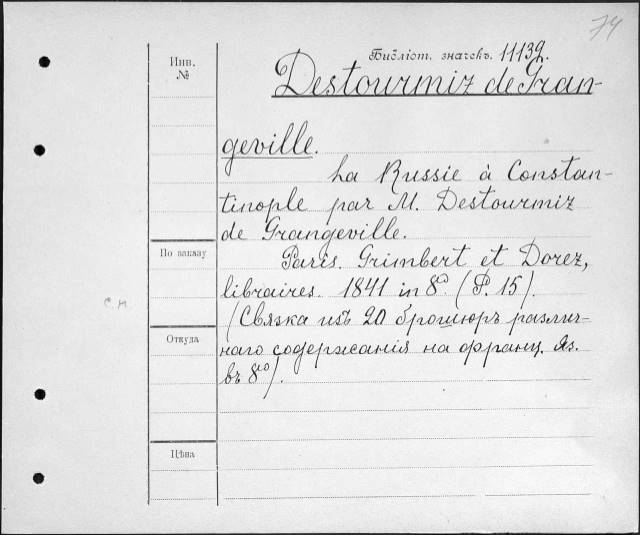 74
Библіот. значекъ. 11139.
Инв.
№
Destourmiz de Gran-
geville.
La Russie à Constan-
tinople par M. Destourmiz
de Grangeville.
По заказу
Paris. Grimbert et Dorez,
libraires. 1841 in 8º (P. 15).
с н
(Связка изъ 20 брошюръ различ-
Откуда
наго содержанія на франц. яз.
въ 8º).
Цѣна